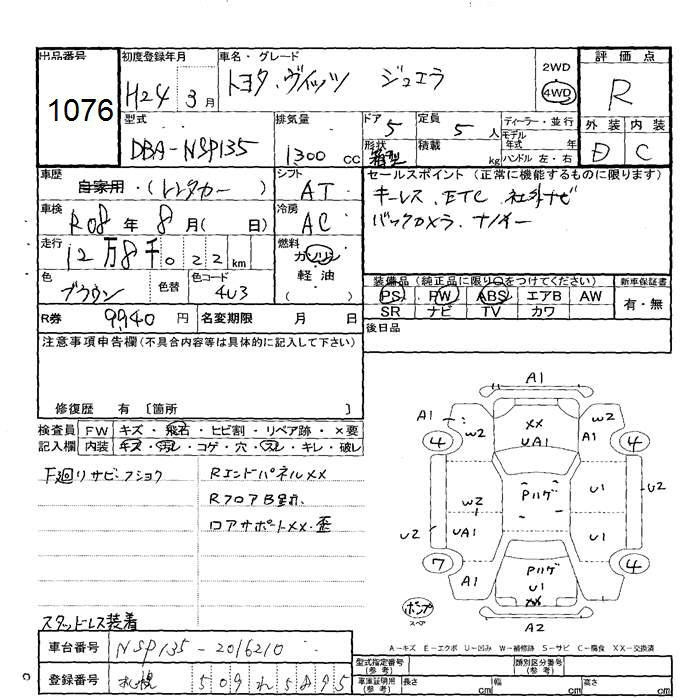 出品番号 1076
初度登録年月 H24 3月
車名・グレード トヨタ ヴィッツ ジュエラ
2WD 4WD
評価点 R
外装 内装
D C
型式 DBA-NSP135
排気量 1300 cc
ドア 5
形状 箱型
定員 5 人
積載 kg
ディーラー・並行
モデル年式 年
ハンドル 左・右
車歴 自家用・(レンタカー)
シフト AT
セールスポイント (正常に機能するものに限ります)
キーレス、ETC 社外ナビ
バックカメラ
車検 R08年 8月( 日)
冷房 AC
走行 12万8千022km
燃料 ガソリン 軽油 ( )
色 ブラウン 色替
色コード 4U3
装備品 (純正品に限り○をつけてください)
新車保証書
PS PW ABS エアB AW
有・無
SR ナビ TV カワ
R券 9,940円 名変期限 月 日
後日品
注意事項申告欄(不具合内容等は具体的に記入して下さい)
修復歴 有 〔箇所 〕
検査員記入欄
FW キズ・飛石・ヒビ割・リペア跡・×要
内装 キズ・汚レ・コゲ・穴・スレ・キレ・破レ
下廻りサビ・フショク
RエンドパネルXX
ロアサポートXX・歪
スタッドレス装着
A1
A1
W2
XX
UA1
W2
A1
4
4
W2
Pハゲ
U1
U2
U2
UA1
U1
7
4
A1
Pハゲ
U1
XX
ポンプ
スペア
A2
A-キズ E-エクボ U-凹み W-補修跡 S-サビ C-腐食 XX-交換済
車台番号 NSP135-2016210
登録番号 札幌 509 れ 5895
型式指定番号(参考)
類別区分番号(参考)
車庫証明用(参考) 長さ cm 幅 cm 高さ cm